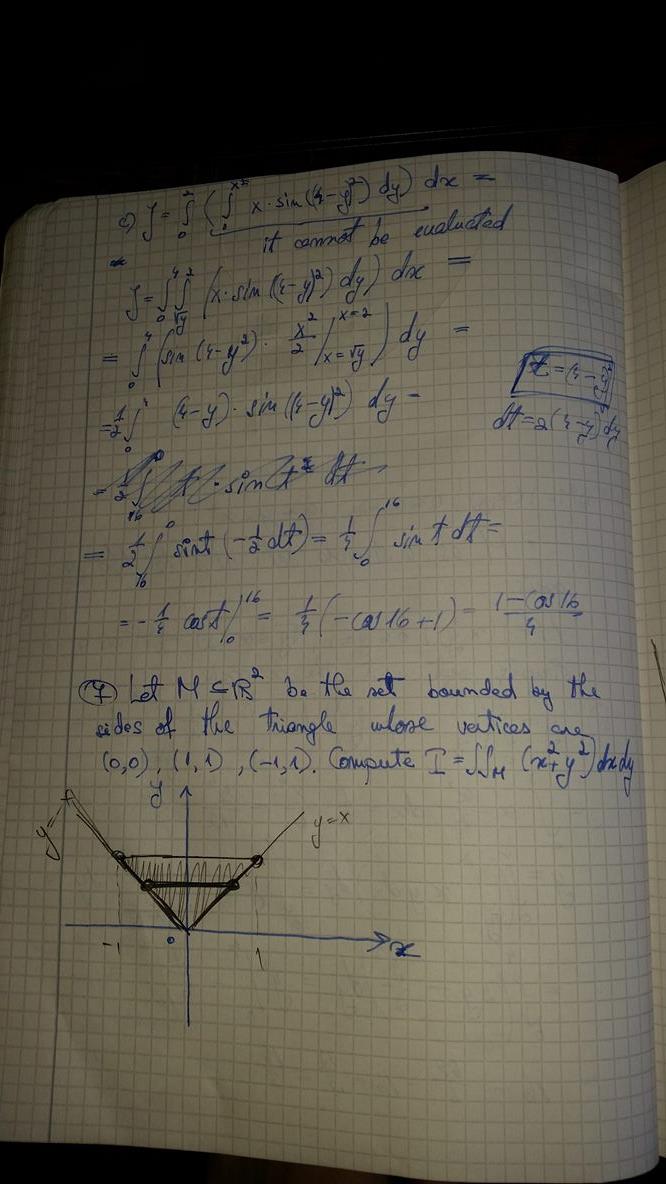 c) J = ∫₀² (∫₀^{x²} x·sin((4-y)²) dy) dx =
it cannot be evaluated
J = ∫₀⁴ ∫_{√y}² (x·sin((4-y)²) dy) dx =
= ∫₀⁴ (sin(4-y²)· x²/2 |_{x=√y}^{x=2}) dy =
= 1/2 ∫₀⁴ (4-y)·sin((4-y)²) dy -
t = (4-y)²
dt = 2(4-y)dy
= 1/2 ∫₁₆⁰ t·sin t² dt
= 1/2 ∫₁₆⁰ sint (-1/2 dt) = 1/4 ∫₀¹⁶ sin t dt =
= -1/4 cost |₀¹⁶ = 1/4 (-cos16+1) = (1-cos16)/4
7 Let M ⊂ ℝ² be the set bounded by the
sides of the triangle whose vertices are
(0,0), (1,1), (-1,1). Compute I = ∬_M (x²+y²)dxdy
y
y=-x
y=x
-1
0
1
x